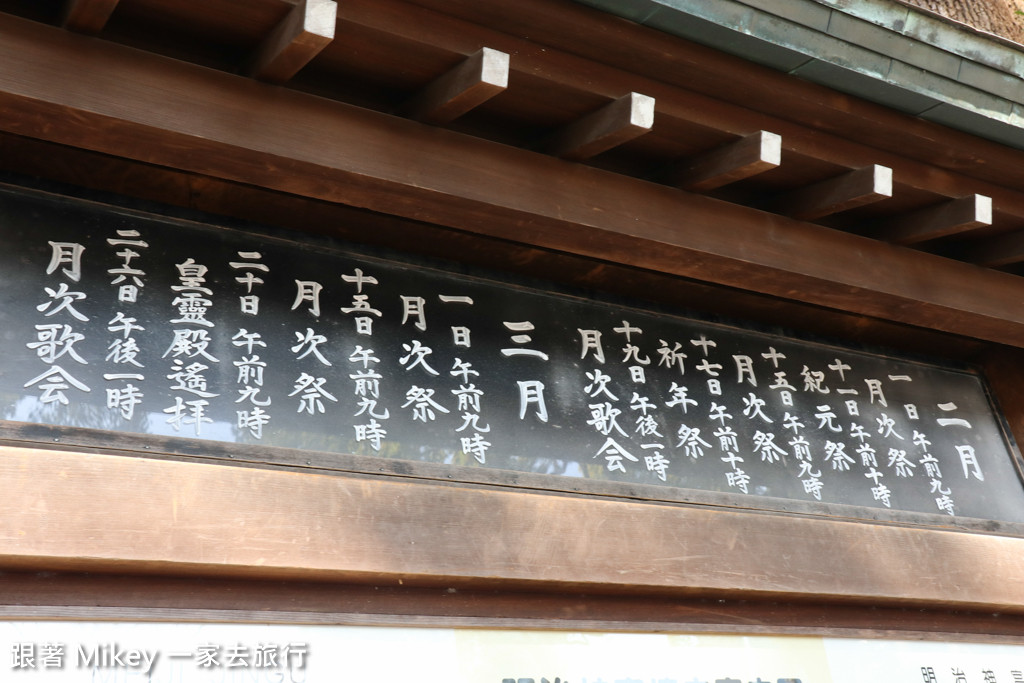 二月
一日 午前九時
月次祭
十一日 午前十時
紀元祭
十五日 午前九時
月次祭
十七日 午前十時
祈年祭
十九日 午後一時
月次歌会
三月
一日 午前九時
月次祭
十五日 午前九時
月次祭
二十日 午前九時
皇靈殿遙拝
二十六日 午後一時
月次歌会
跟著 Mikey 一家去旅行